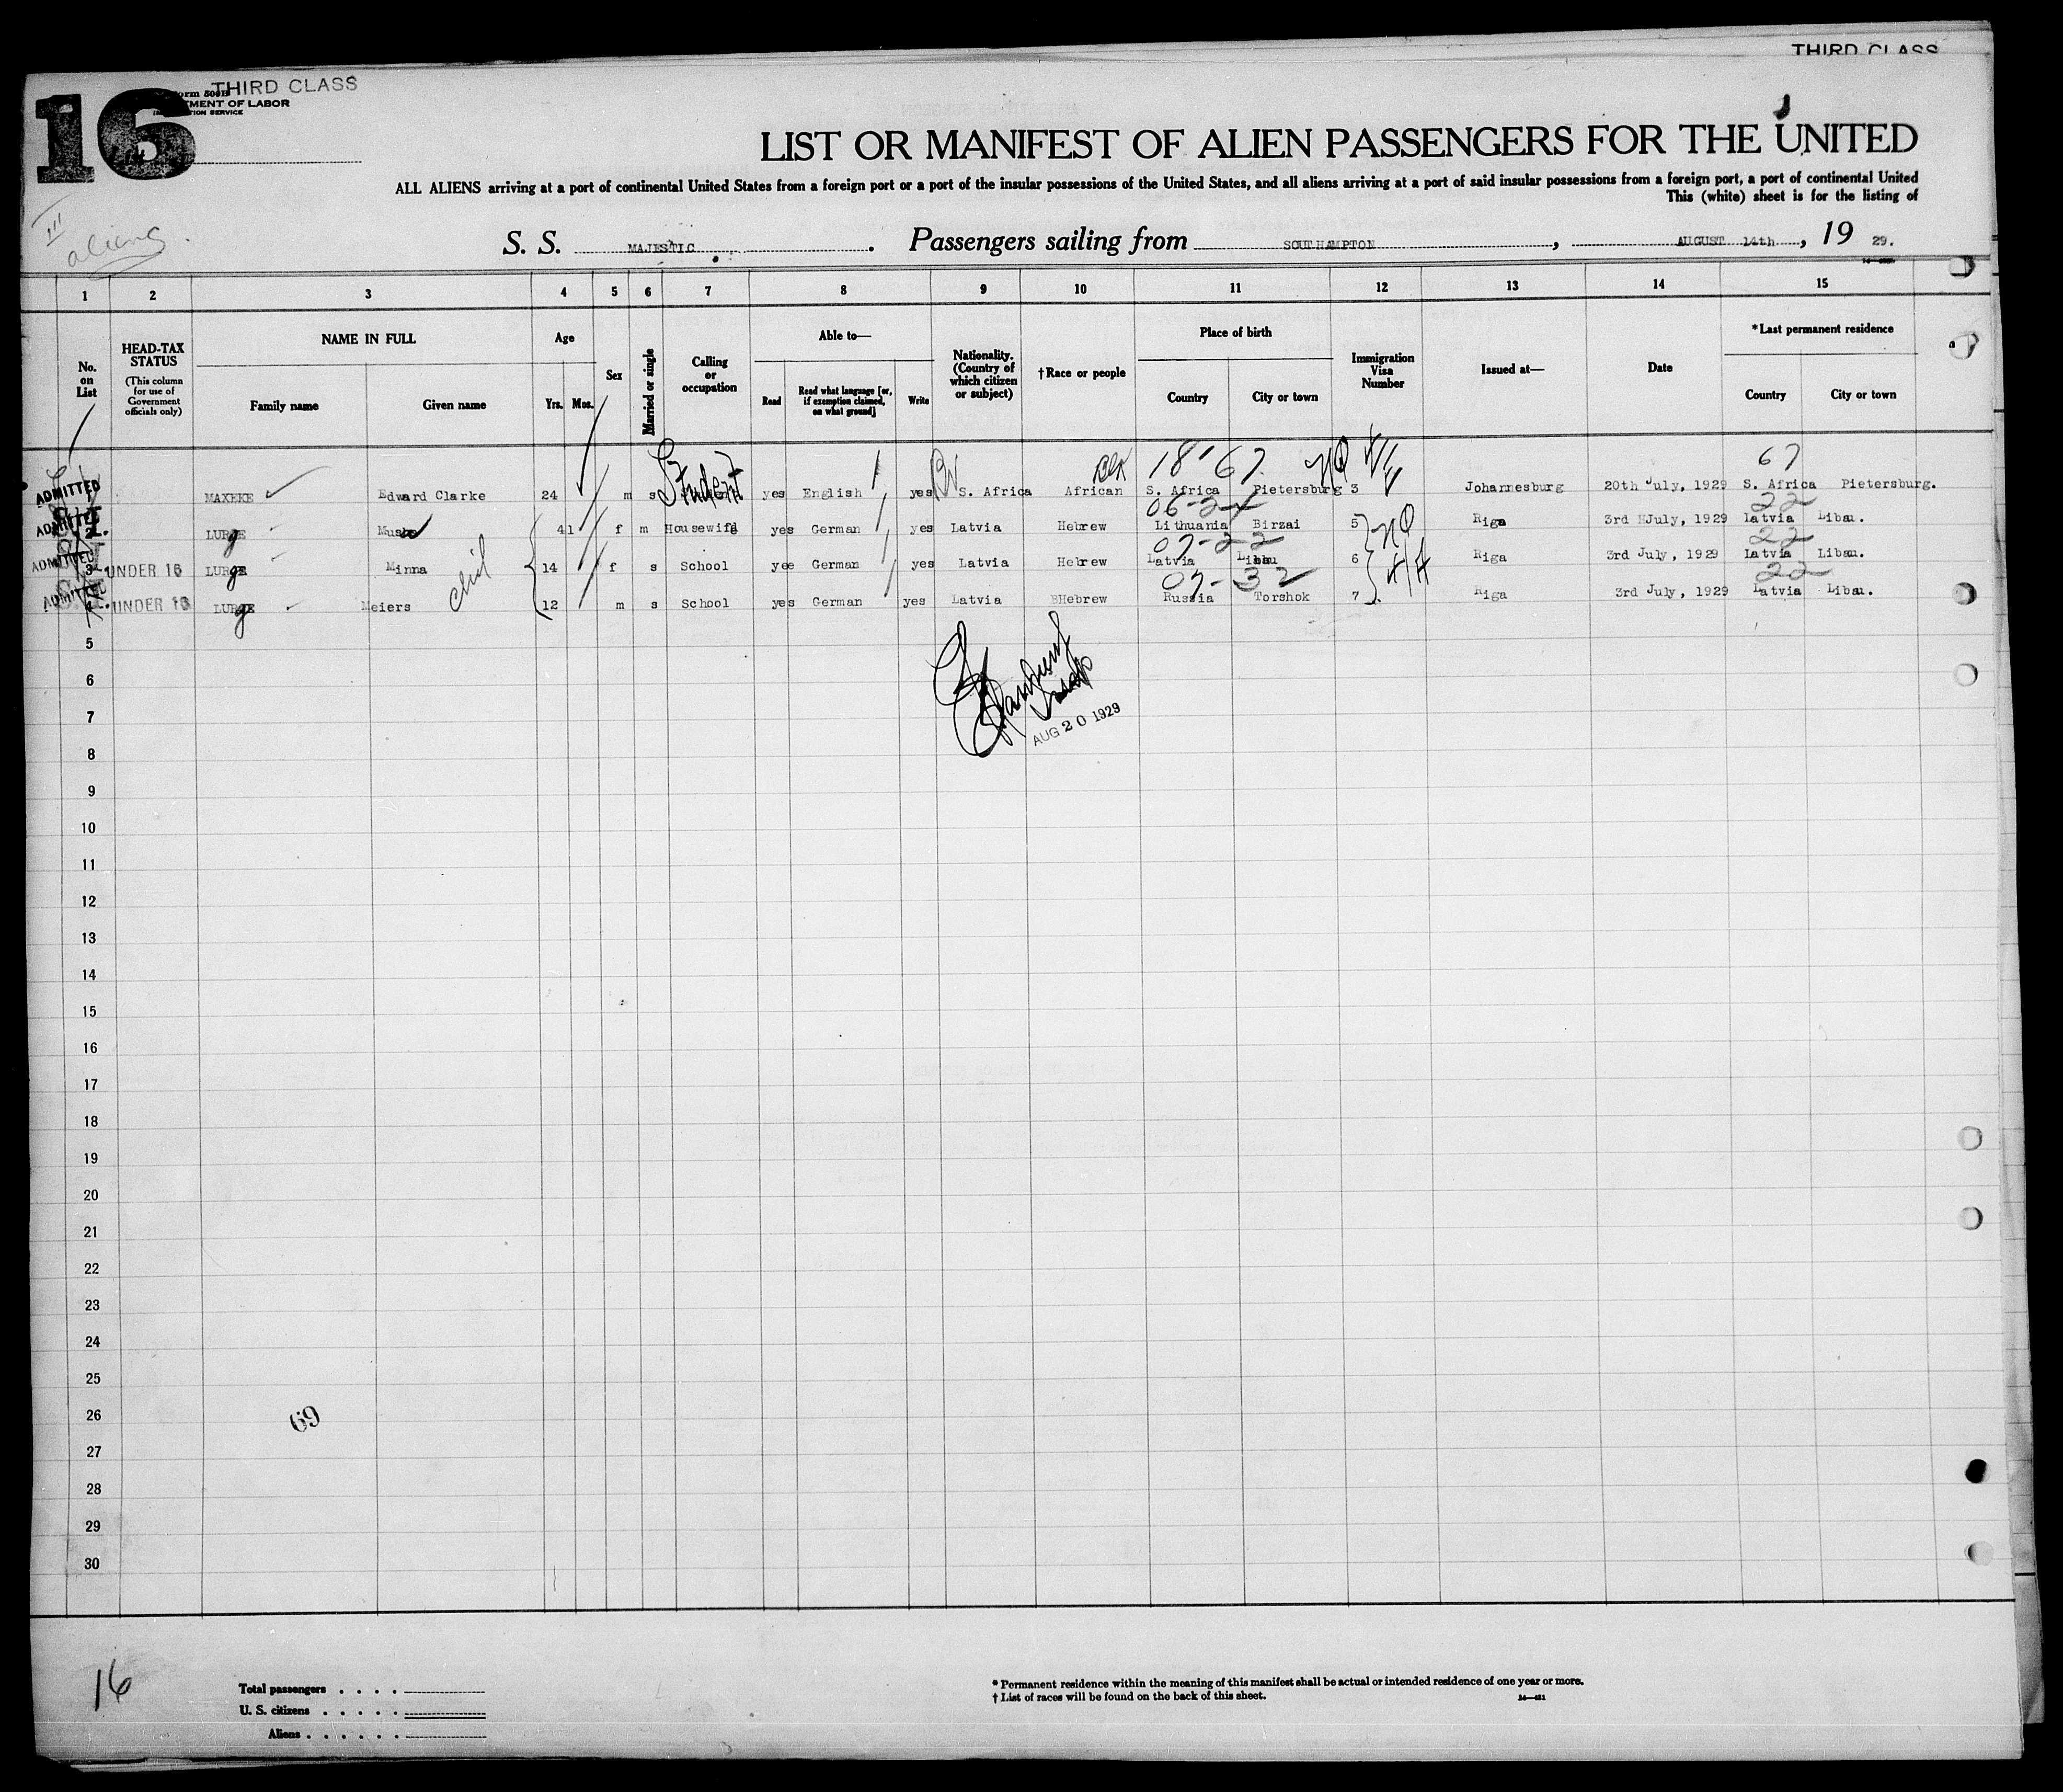 THIRD CLASS
THIRD CLASS
16
Form 500B
MENT OF LABOR
TION SERVICE
LIST OR MANIFEST OF ALIEN PASSENGERS FOR THE UNITED
ALL ALIENS arriving at a port of continental United States from a foreign port or a port of the insular possessions of the United States, and all aliens arriving at a port of said insular possessions from a foreign port, a port of continental United
This (white) sheet is for the listing of
III
aliens.
S. S. MAJESTIC. Passengers sailing from SOUTHAMPTON, AUGUST 14th, 19 29.
1 2 3 4 5 6 7 8 9 10 11 12 13 14 15
No. on List
HEAD-TAX STATUS (This column for use of Government officials only)
NAME IN FULL
Family name Given name
Age
Yrs. Mos.
Sex
Married or single
Calling or occupation
Able to—
Read Read what language [or, if exemption claimed, on what ground] Write
Nationality. (Country of which citizen or subject)
†Race or people
Place of birth
Country City or town
Immigration Visa Number
Issued at—
Date
*Last permanent residence
Country City or town
Student 18-67 67
ADMITTED 1 MAXEKE Edward Clarke 24 m s yes English yes S. Africa African S. Africa Pietersburg 3 Johannesburg 20th July, 1929 S. Africa Pietersburg.
06-24 22
ADMITTED 2 LURGE 41 f m Housewife yes German yes Latvia Hebrew Lithuania Birzai 5 NQ Riga 3rd July, 1929 Latvia Libau.
07-22 22
ADMITTED 3 UNDER 16 LURGE Minna 14 f s School yes German yes Latvia Hebrew Latvia Libau 6 Riga 3rd July, 1929 Latvia Libau.
07-32 22
ADMITTED 4 UNDER 16 LURGE Meiers 12 m s School yes German yes Latvia Hebrew Russia Torshok 7 Riga 3rd July, 1929 Latvia Libau.
5
6
7
AUG 20 1929
8
9
10
11
12
13
14
15
16
17
18
19
20
21
22
23
24
25
26
69
27
28
29
30
16
Total passengers . . . .
U. S. citizens . . . . .
Aliens . . . . . .
* Permanent residence within the meaning of this manifest shall be actual or intended residence of one year or more.
† List of races will be found on the back of this sheet.
14—421